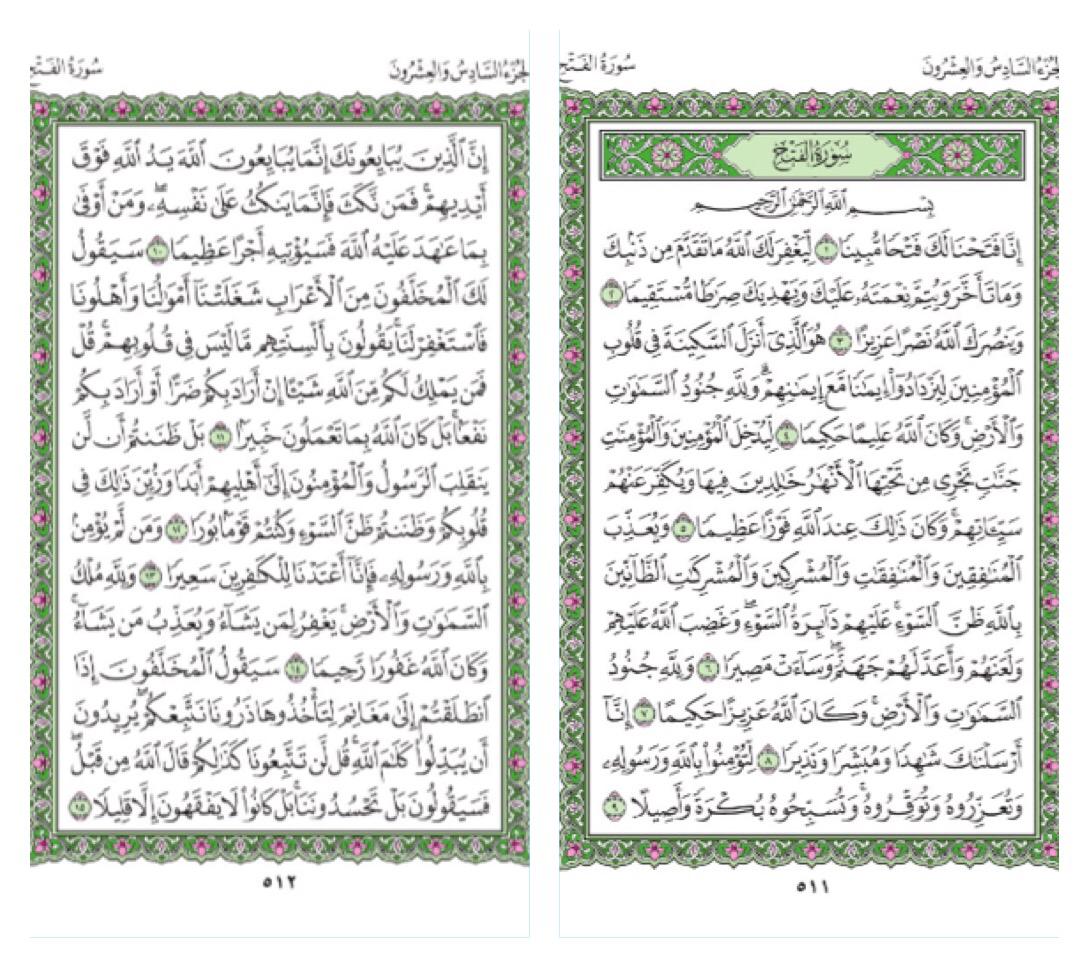 الجزء السادس والعشرون
سورة الفتح
سُورَةُ الفَتْحِ
بِسْمِ ٱللَّهِ ٱلرَّحْمَٰنِ ٱلرَّحِيمِ
إِنَّا فَتَحْنَا لَكَ فَتْحًا مُّبِينًا ١ لِّيَغْفِرَ لَكَ ٱللَّهُ مَا تَقَدَّمَ مِن ذَنۢبِكَ
وَمَا تَأَخَّرَ وَيُتِمَّ نِعْمَتَهُۥ عَلَيْكَ وَيَهْدِيَكَ صِرَٰطًا مُّسْتَقِيمًا ٢
وَيَنصُرَكَ ٱللَّهُ نَصْرًا عَزِيزًا ٣ هُوَ ٱلَّذِىٓ أَنزَلَ ٱلسَّكِينَةَ فِى قُلُوبِ
ٱلْمُؤْمِنِينَ لِيَزْدَادُوٓا۟ إِيمَٰنًا مَّعَ إِيمَٰنِهِمْ ۗ وَلِلَّهِ جُنُودُ ٱلسَّمَٰوَٰتِ
وَٱلْأَرْضِ ۚ وَكَانَ ٱللَّهُ عَلِيمًا حَكِيمًا ٤ لِّيُدْخِلَ ٱلْمُؤْمِنِينَ وَٱلْمُؤْمِنَٰتِ
جَنَّٰتٍ تَجْرِى مِن تَحْتِهَا ٱلْأَنْهَٰرُ خَٰلِدِينَ فِيهَا وَيُكَفِّرَ عَنْهُمْ
سَيِّـَٔاتِهِمْ ۚ وَكَانَ ذَٰلِكَ عِندَ ٱللَّهِ فَوْزًا عَظِيمًا ٥ وَيُعَذِّبَ
ٱلْمُنَٰفِقِينَ وَٱلْمُنَٰفِقَٰتِ وَٱلْمُشْرِكِينَ وَٱلْمُشْرِكَٰتِ ٱلظَّآنِّينَ
بِٱللَّهِ ظَنَّ ٱلسَّوْءِ ۚ عَلَيْهِمْ دَآئِرَةُ ٱلسَّوْءِ ۖ وَغَضِبَ ٱللَّهُ عَلَيْهِمْ
وَلَعَنَهُمْ وَأَعَدَّ لَهُمْ جَهَنَّمَ ۖ وَسَآءَتْ مَصِيرًا ٦ وَلِلَّهِ جُنُودُ
ٱلسَّمَٰوَٰتِ وَٱلْأَرْضِ ۚ وَكَانَ ٱللَّهُ عَزِيزًا حَكِيمًا ٧ إِنَّآ
أَرْسَلْنَٰكَ شَٰهِدًا وَمُبَشِّرًا وَنَذِيرًا ٨ لِّتُؤْمِنُوا۟ بِٱللَّهِ وَرَسُولِهِۦ
وَتُعَزِّرُوهُ وَتُوَقِّرُوهُ ۚ وَتُسَبِّحُوهُ بُكْرَةً وَأَصِيلًا ٩
٥١١
الجزء السادس والعشرون
سورة الفتح
إِنَّ ٱلَّذِينَ يُبَايِعُونَكَ إِنَّمَا يُبَايِعُونَ ٱللَّهَ يَدُ ٱللَّهِ فَوْقَ
أَيْدِيهِمْ ۚ فَمَن نَّكَثَ فَإِنَّمَا يَنكُثُ عَلَىٰ نَفْسِهِۦ ۖ وَمَنْ أَوْفَىٰ
بِمَا عَٰهَدَ عَلَيْهُ ٱللَّهَ فَسَيُؤْتِيهِ أَجْرًا عَظِيمًا ١٠ سَيَقُولُ
لَكَ ٱلْمُخَلَّفُونَ مِنَ ٱلْأَعْرَابِ شَغَلَتْنَآ أَمْوَٰلُنَا وَأَهْلُونَا
فَٱسْتَغْفِرْ لَنَا ۚ يَقُولُونَ بِأَلْسِنَتِهِم مَّا لَيْسَ فِى قُلُوبِهِمْ ۚ قُلْ
فَمَن يَمْلِكُ لَكُم مِّنَ ٱللَّهِ شَيْـًٔا إِنْ أَرَادَ بِكُمْ ضَرًّا أَوْ أَرَادَ بِكُمْ
نَفْعًۢا ۚ بَلْ كَانَ ٱللَّهُ بِمَا تَعْمَلُونَ خَبِيرًۢا ١١ بَلْ ظَنَنتُمْ أَن لَّن
يَنقَلِبَ ٱلرَّسُولُ وَٱلْمُؤْمِنُونَ إِلَىٰٓ أَهْلِيهِمْ أَبَدًا وَزُيِّنَ ذَٰلِكَ فِى
قُلُوبِكُمْ وَظَنَنتُمْ ظَنَّ ٱلسَّوْءِ وَكُنتُمْ قَوْمًۢا بُورًا ١٢ وَمَن لَّمْ يُؤْمِنۢ
بِٱللَّهِ وَرَسُولِهِۦ فَإِنَّآ أَعْتَدْنَا لِلْكَٰفِرِينَ سَعِيرًا ١٣ وَلِلَّهِ مُلْكُ
ٱلسَّمَٰوَٰتِ وَٱلْأَرْضِ ۚ يَغْفِرُ لِمَن يَشَآءُ وَيُعَذِّبُ مَن يَشَآءُ ۚ
وَكَانَ ٱللَّهُ غَفُورًا رَّحِيمًا ١٤ سَيَقُولُ ٱلْمُخَلَّفُونَ إِذَا
ٱنطَلَقْتُمْ إِلَىٰ مَغَانِمَ لِتَأْخُذُوهَا ذَرُونَا نَتَّبِعْكُمْ ۖ يُرِيدُونَ
أَن يُبَدِّلُوا۟ كَلَٰمَ ٱللَّهِ ۚ قُل لَّن تَتَّبِعُونَا كَذَٰلِكُمْ قَالَ ٱللَّهُ مِن قَبْلُ ۖ
فَسَيَقُولُونَ بَلْ تَحْسُدُونَنَا ۚ بَلْ كَانُوا۟ لَا يَفْقَهُونَ إِلَّا قَلِيلًا ١٥
٥١٢